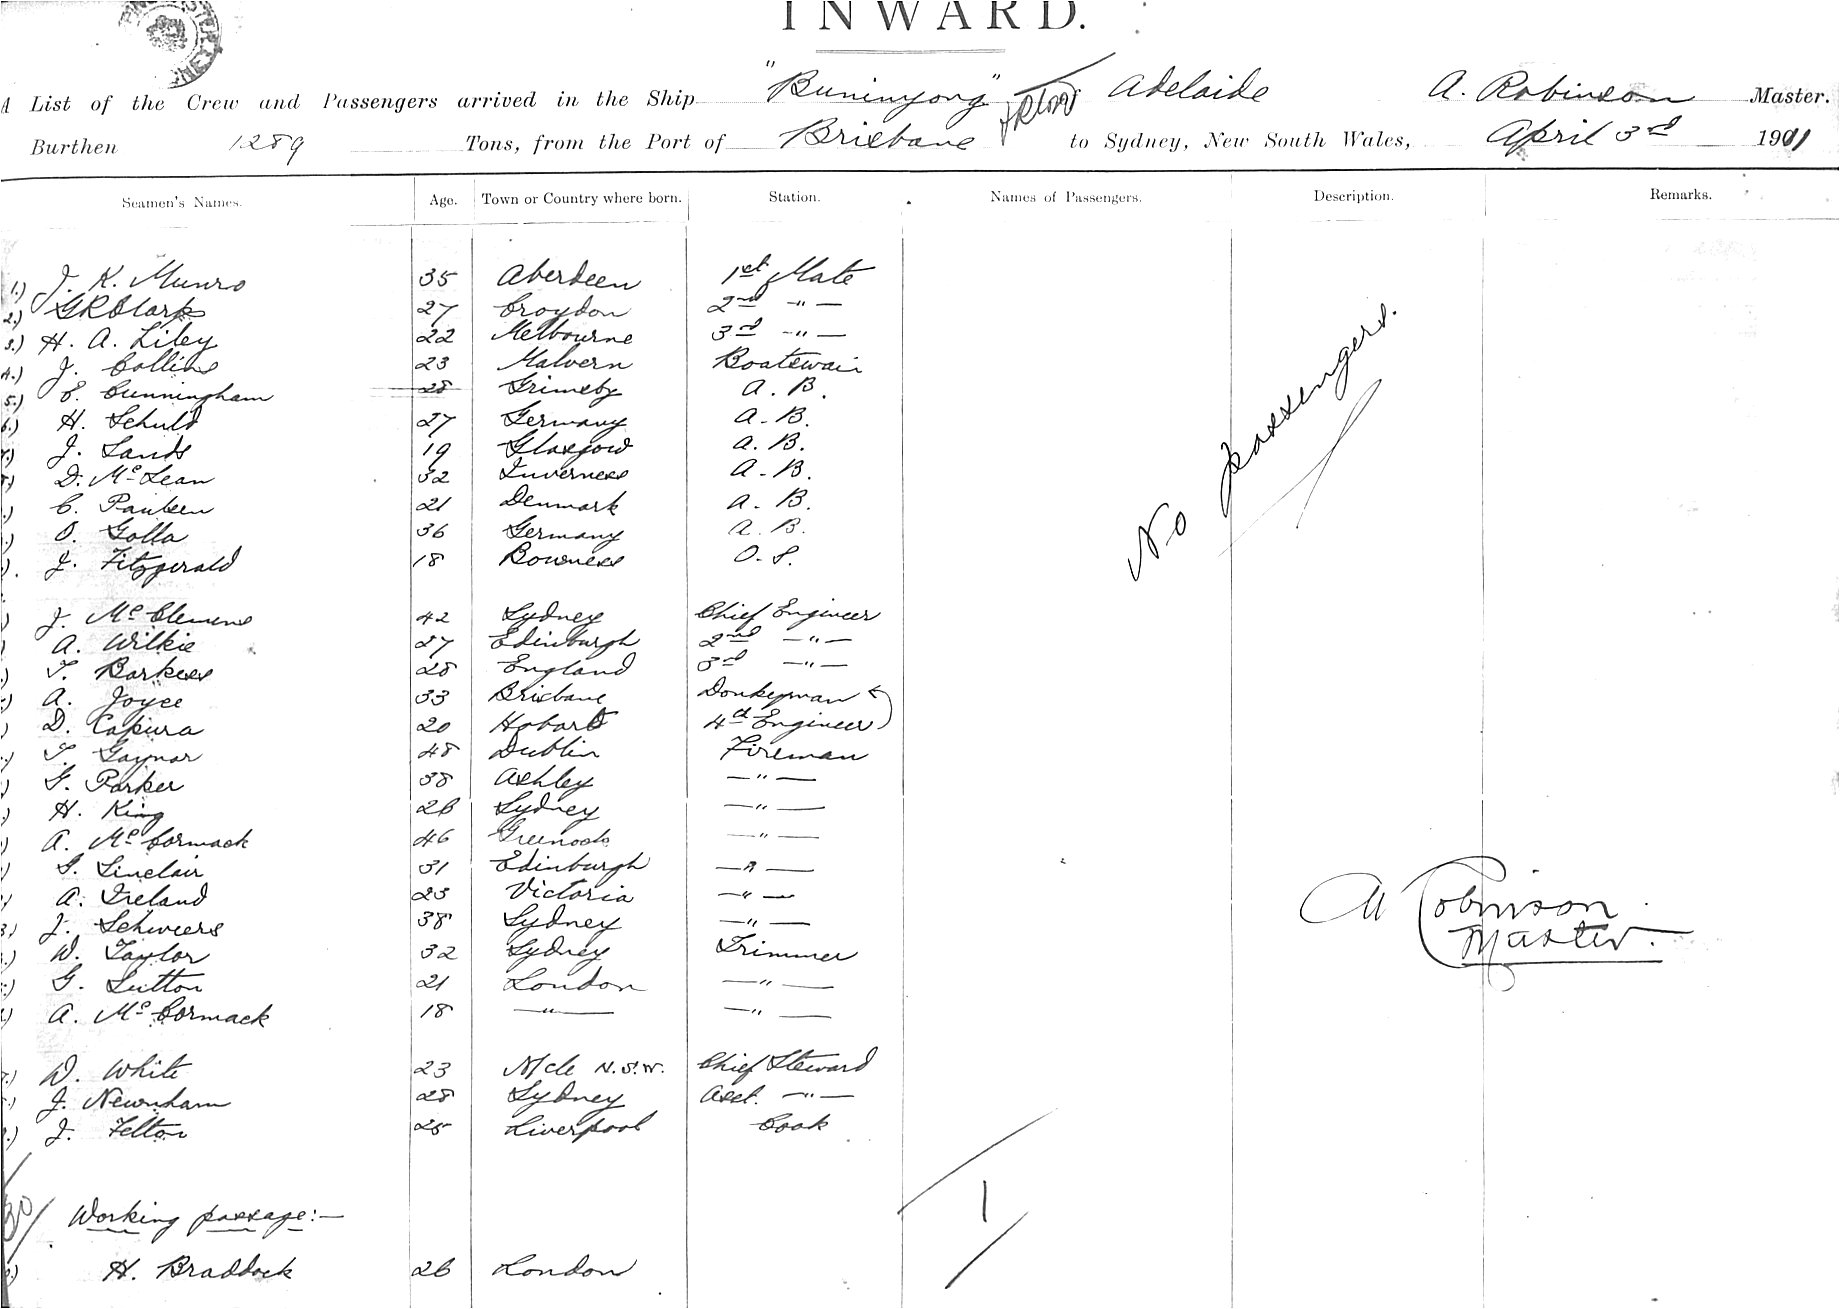 INWARD.
A List of the Crew and Passengers arrived in the Ship "Buninyong" of Adelaide A. Robinson Master.
Burthen 1289 Tons, from the Port of Brisbane to Sydney, New South Wales, April 3rd 1901
Seamen's Names. Age. Town or Country where born. Station. Names of Passengers. Description. Remarks.
1.) J. K. Munro 35 Aberdeen 1st Mate
2.) G R Clark 27 Croydon 2nd —"—
3.) H. A. Liley 22 Melbourne 3rd —"—
4.) J. Collins 23 Malvern Boatswain
5.) Cunningham 28 Grimsby A. B.
6.) H. Schuld 27 Germany A. B.
J. Sands 19 Glasgow A. B.
D. McLean 32 Inverness A. B.
C. Paulsen 21 Denmark A. B.
O. Golla 36 Germany A. B.
J. Fitzgerald 18 Bowness O. S.
No passengers.
J. McClemens 42 Sydney Chief Engineer
A. Wilkie 27 Edinburgh 2nd —"—
T. Barkess 28 England 3rd —"—
A. Joyce 33 Brisbane Donkeyman
D. Capura 20 Hobart 4th Engineer
T. Gaynor 48 Dublin Fireman
G. Parker 38 Ashley —"—
H. King 26 Sydney —"—
A. McCormack 46 Greenock —"—
G. Sinclair 31 Edinburgh —"—
A. Ireland 23 Victoria —"—
J. Schweers 38 Sydney —"—
W. Taylor 32 Sydney Trimmer
G. Sutton 21 London —"—
A. McCormack 18 —"— —"—
A Robinson
Master.
W. White 23 N/cle N.S.W. Chief Steward
J. Newnham 28 Sydney Asst. —"—
J. Felton 25 Liverpool Cook
30/ Working passage:—
1
H. Braddock 26 London